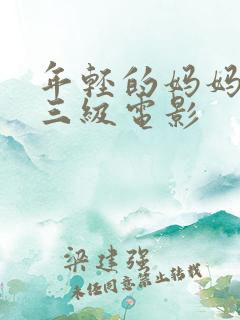 年轻的妈妈
三级电影
梁建强
未经同意禁止转载